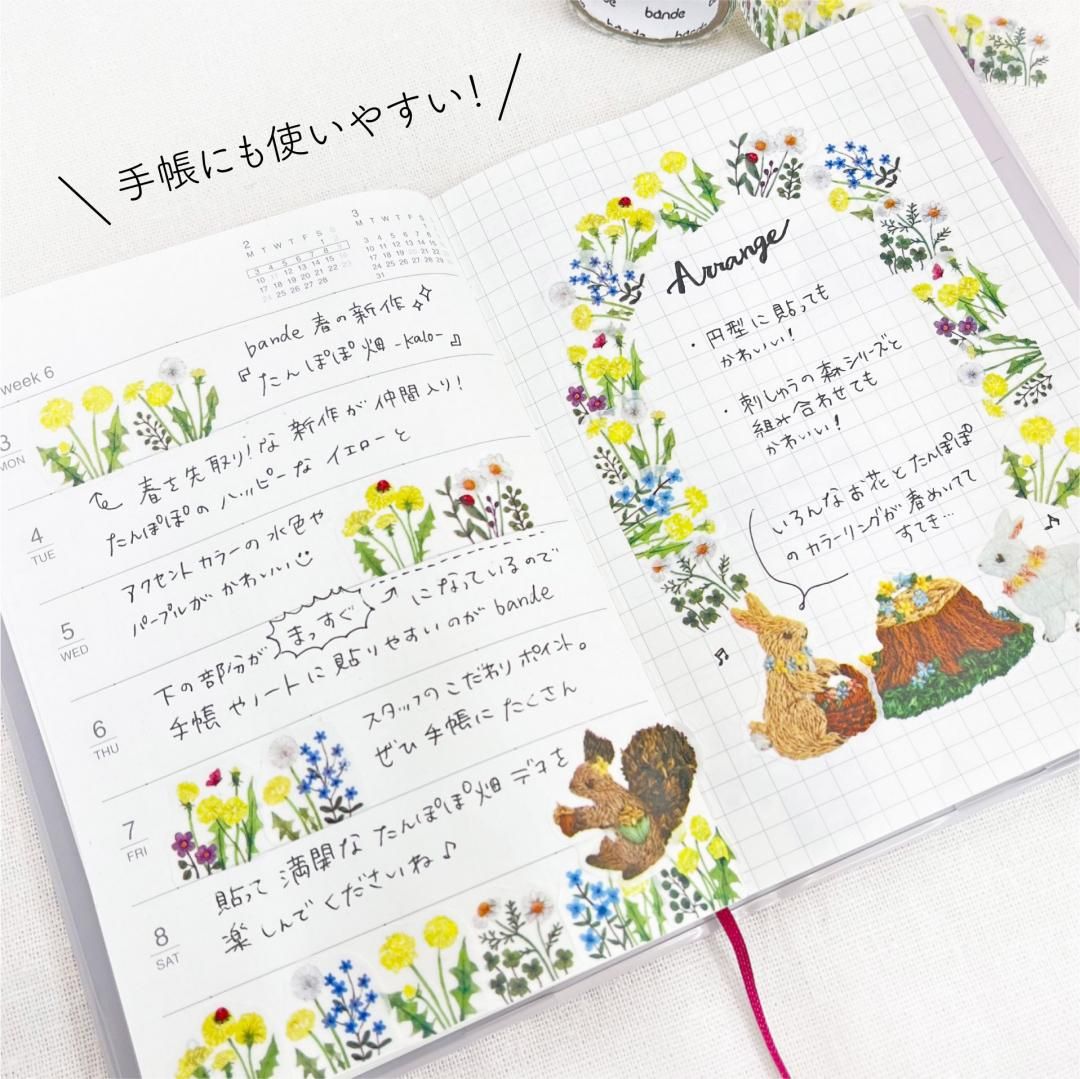 bande
bande
手帳にも使いやすい!
2
M T W T F S S
1 2
3 4 5 6 7 8 9
10 11 12 13 14 15 16
17 18 19 20 21 22 23
24 25 26 27 28
3
M T W T F S S
1 2
3 4 5 6 7 8 9
10 11 12 13 14 15 16
17 18 19 20 21 22 23
24 25 26 27 28 29 30
31
week 6
bande 春の新作
『たんぽぽ畑 -kalo-』
3
MON
春を先取り!な 新作が 仲間入り!
たんぽぽの ハッピーな イエローと
4
TUE
アクセントカラーの 水色や
パープルが かわいい
5
WED
下の部分が まっすぐ になっているので
手帳やノートに貼りやすいのが bande
6
THU
スタッフのこだわりポイント。
ぜひ 手帳に たくさん
7
FRI
貼って 満開な たんぽぽ畑 デコを
楽しんでくださいね♪
8
SAT
Arrange
・円型に貼っても
かわいい!
・刺しゅうの森シリーズと
組み合わせても
かわいい!
いろんなお花とたんぽぽ
のカラーリングが春めいてて
すてき…